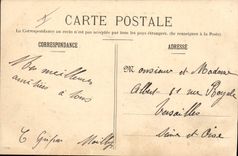 CARTE POSTALE
La Correspondance au recto n'est pas acceptée par tous les pays étrangers, (Se renseigner à la Poste).
CORRESPONDANCE
ADRESSE
Mes meilleures
amitiés à tous
Monsieur et Madame
Albert 81 rue Royale
Versailles
Seine et Oise